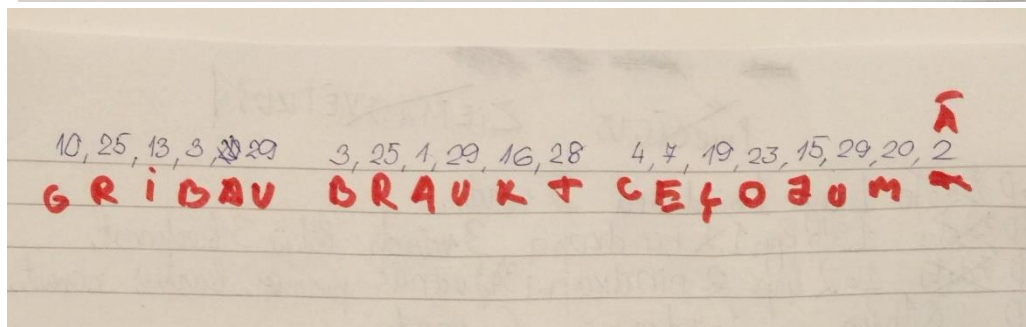 Ā
10, 25, 13, 3, 29 3, 25, 1, 29, 16, 28 4, 7, 19, 23, 15, 29, 20, 2
G R i B U B R A U K T C E Ļ O J U M